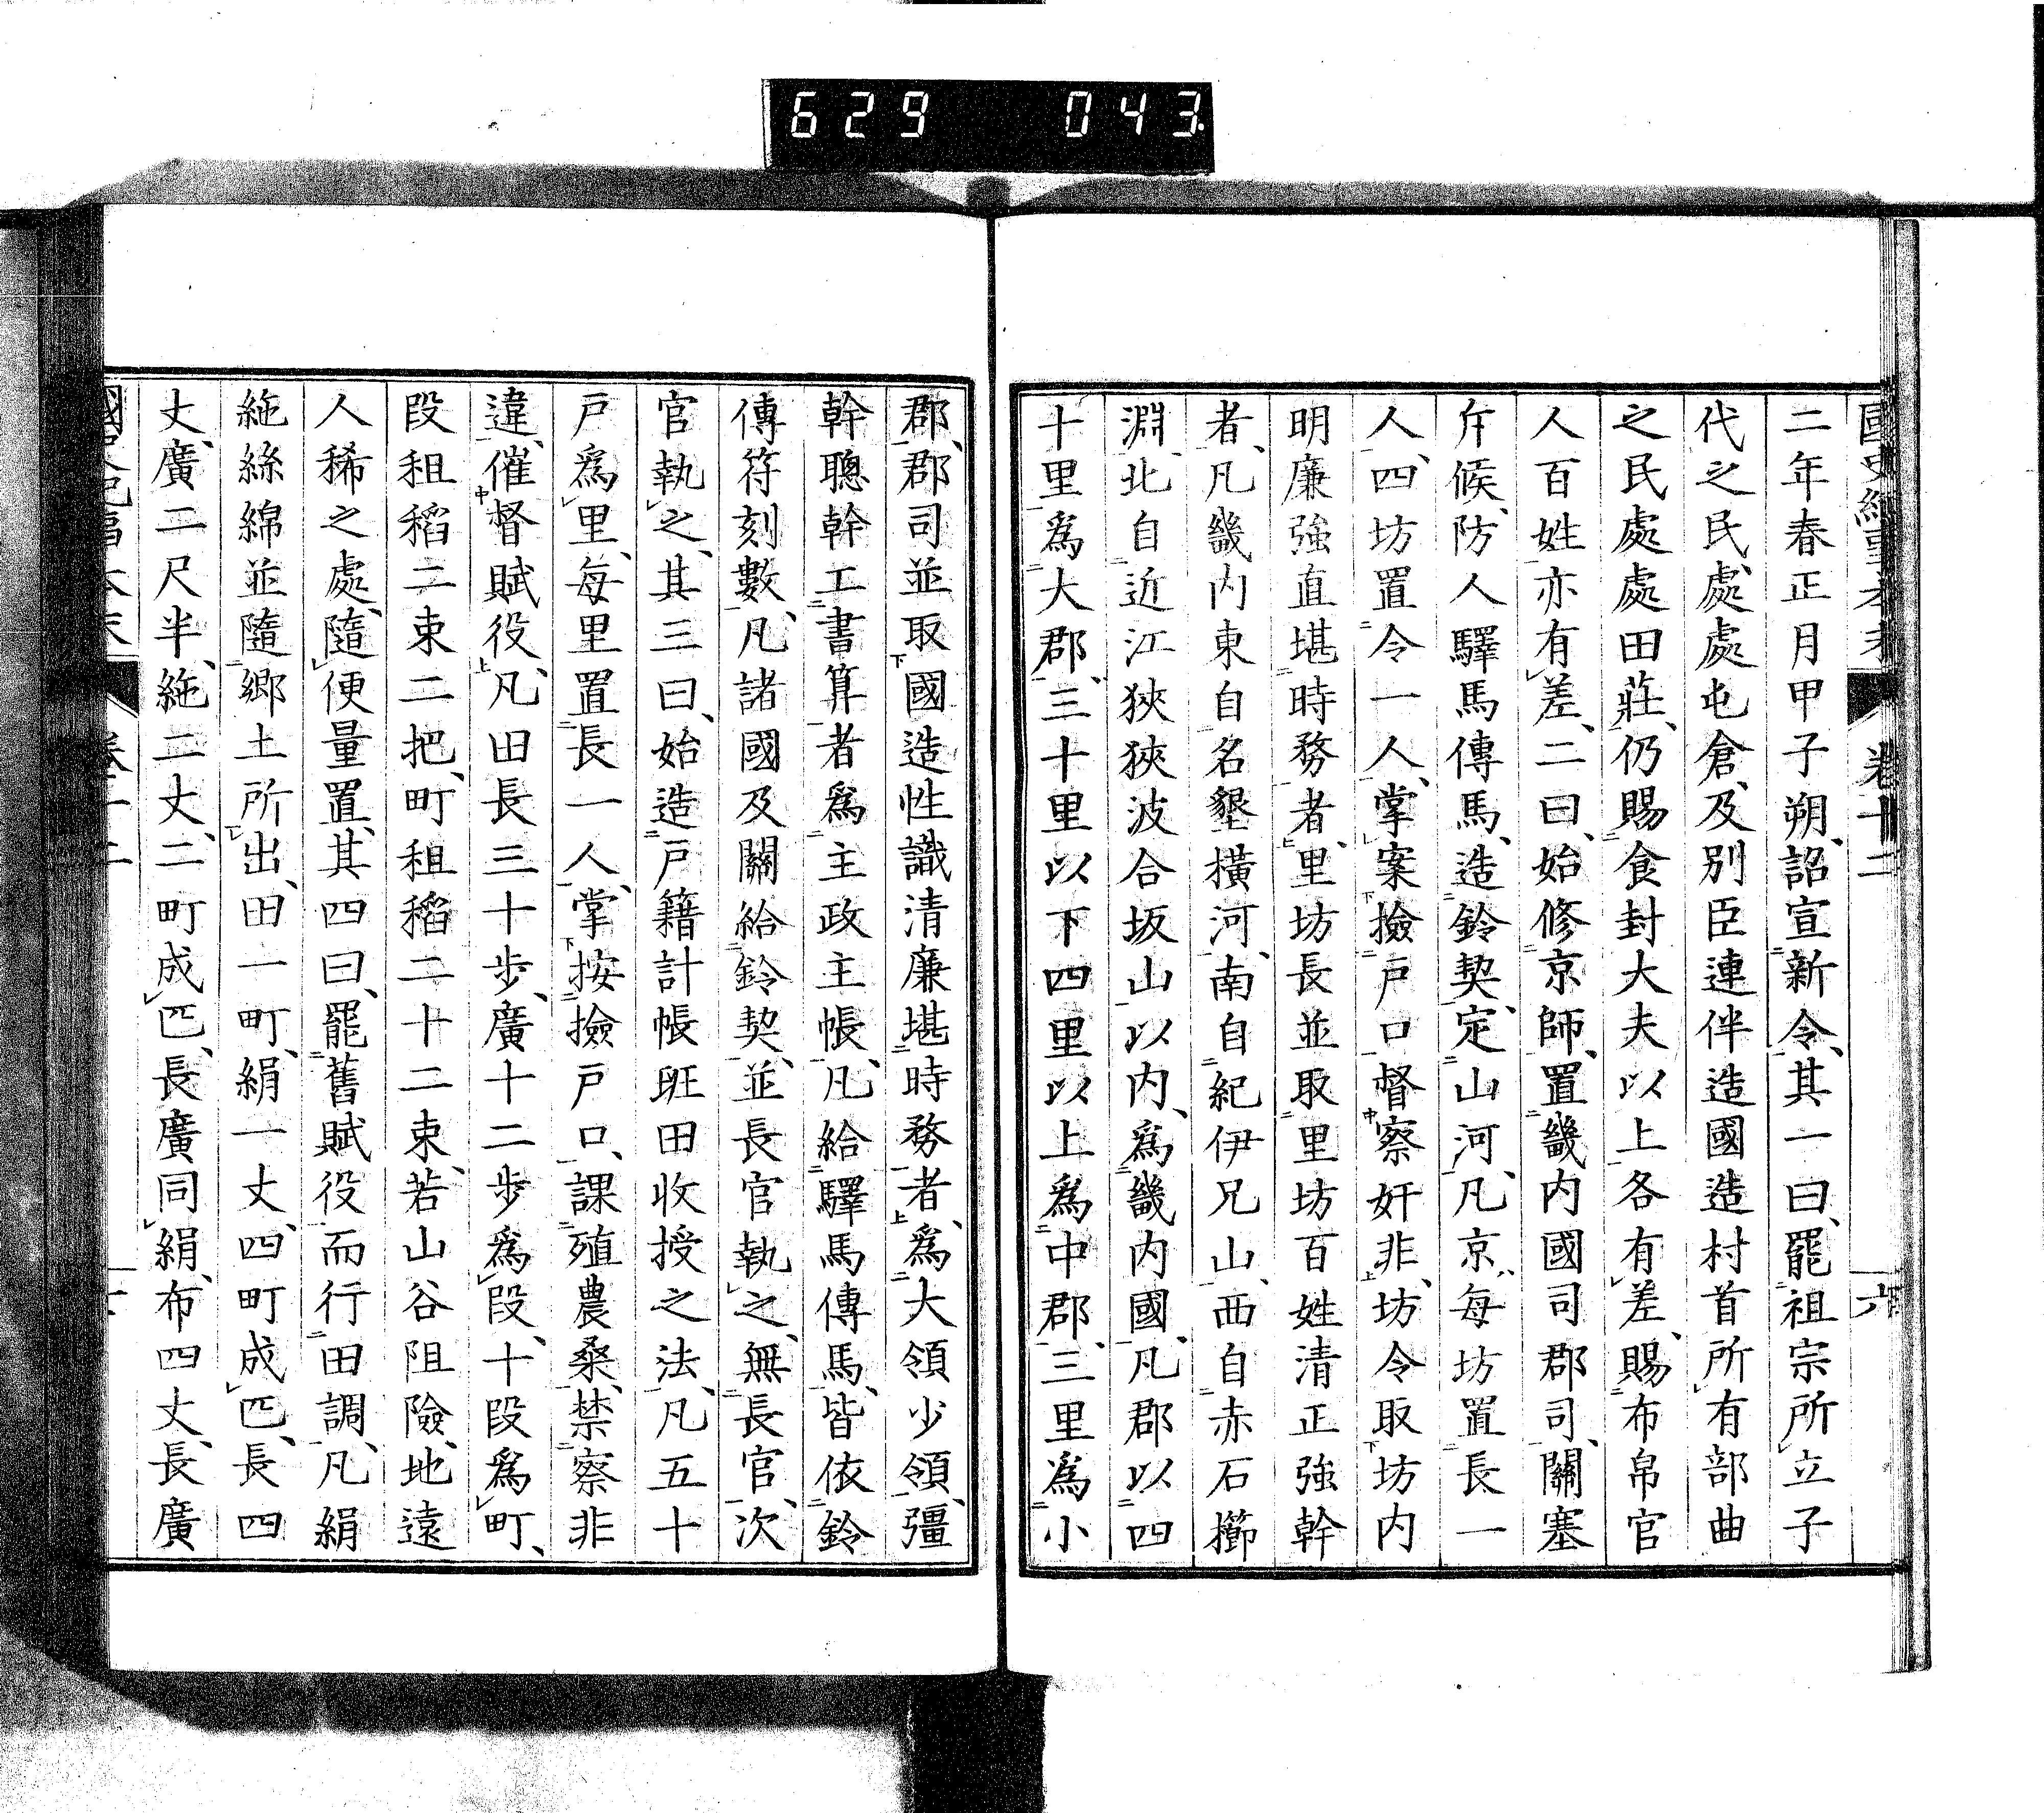 629 043
國史紀事本末 卷十二 六
二年春正月甲子朔、詔宣新令、其一曰、罷祖宗所立子
代之民、處處屯倉、及別臣連伴造國造村首所有部曲
之民處處田莊、仍賜食封大夫以上各有差、賜布帛官
人百姓亦有差、二曰、始修京師、置畿内國司郡司、關塞
斥候、防人驛馬傳馬、造鈴契、定山河、凡京、每坊置長一
人、四坊置令一人、掌案撿戸口督察奸非、坊令取坊内
明廉強直堪時務者、里坊長並取里坊百姓清正強幹
者、凡畿内東自名墾橫河、南自紀伊兄山、西自赤石櫛
淵、北自近江狹狹波合坂山以内、爲畿内國、凡郡以四
十里爲大郡、三十里以下四里以上爲中郡、三里爲小
郡、郡司並取國造性識清廉堪時務者、爲大領少領、彊
幹聰幹工書算者爲主政主帳、凡給驛馬傳馬、皆依鈴
傳符刻數、凡諸國及關給鈴契、並長官執之、無長官、次
官執之、其三曰、始造戸籍計帳班田收授之法、凡五十
戸爲里、每里置長一人、掌按撿戸口、課殖農桑、禁察非
違、催督賦役、凡田長三十步、廣十二步爲段、十段爲町、
段租稻二束二把、町租稻二十二束、若山谷阻險、地遠
人稀之處、隨便量置、其四曰、罷舊賦役而行田調、凡絹
絁絲綿並隨鄉土所出、田一町、絹一丈、四町成匹、長四
丈、廣二尺半、絁二丈、二町成匹、長廣同絹、布四丈、長廣